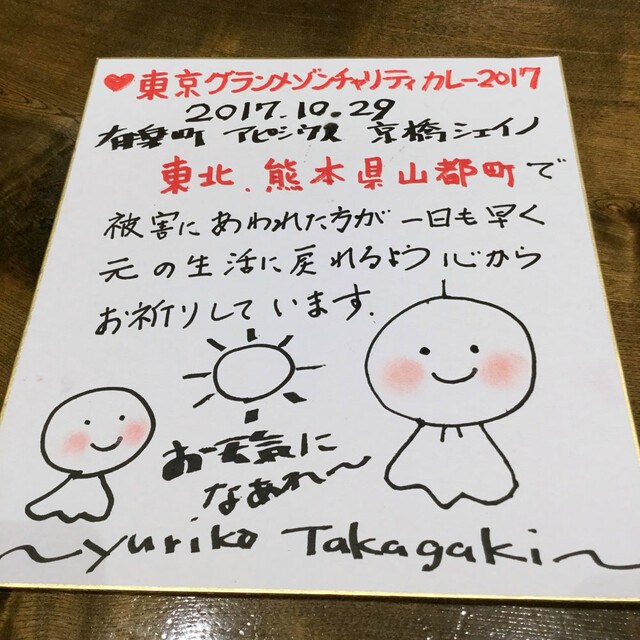 ♥東京グランメゾンチャリティカレー2017
2017.10.29
有楽町 アピシウス 京橋シェイノ
東北、熊本県山都町で
被害にあわれた方が一日も早く
元の生活に戻れるよう心から
お祈りしています.
お天気に
なあれ〜
〜yuriko Takagaki〜